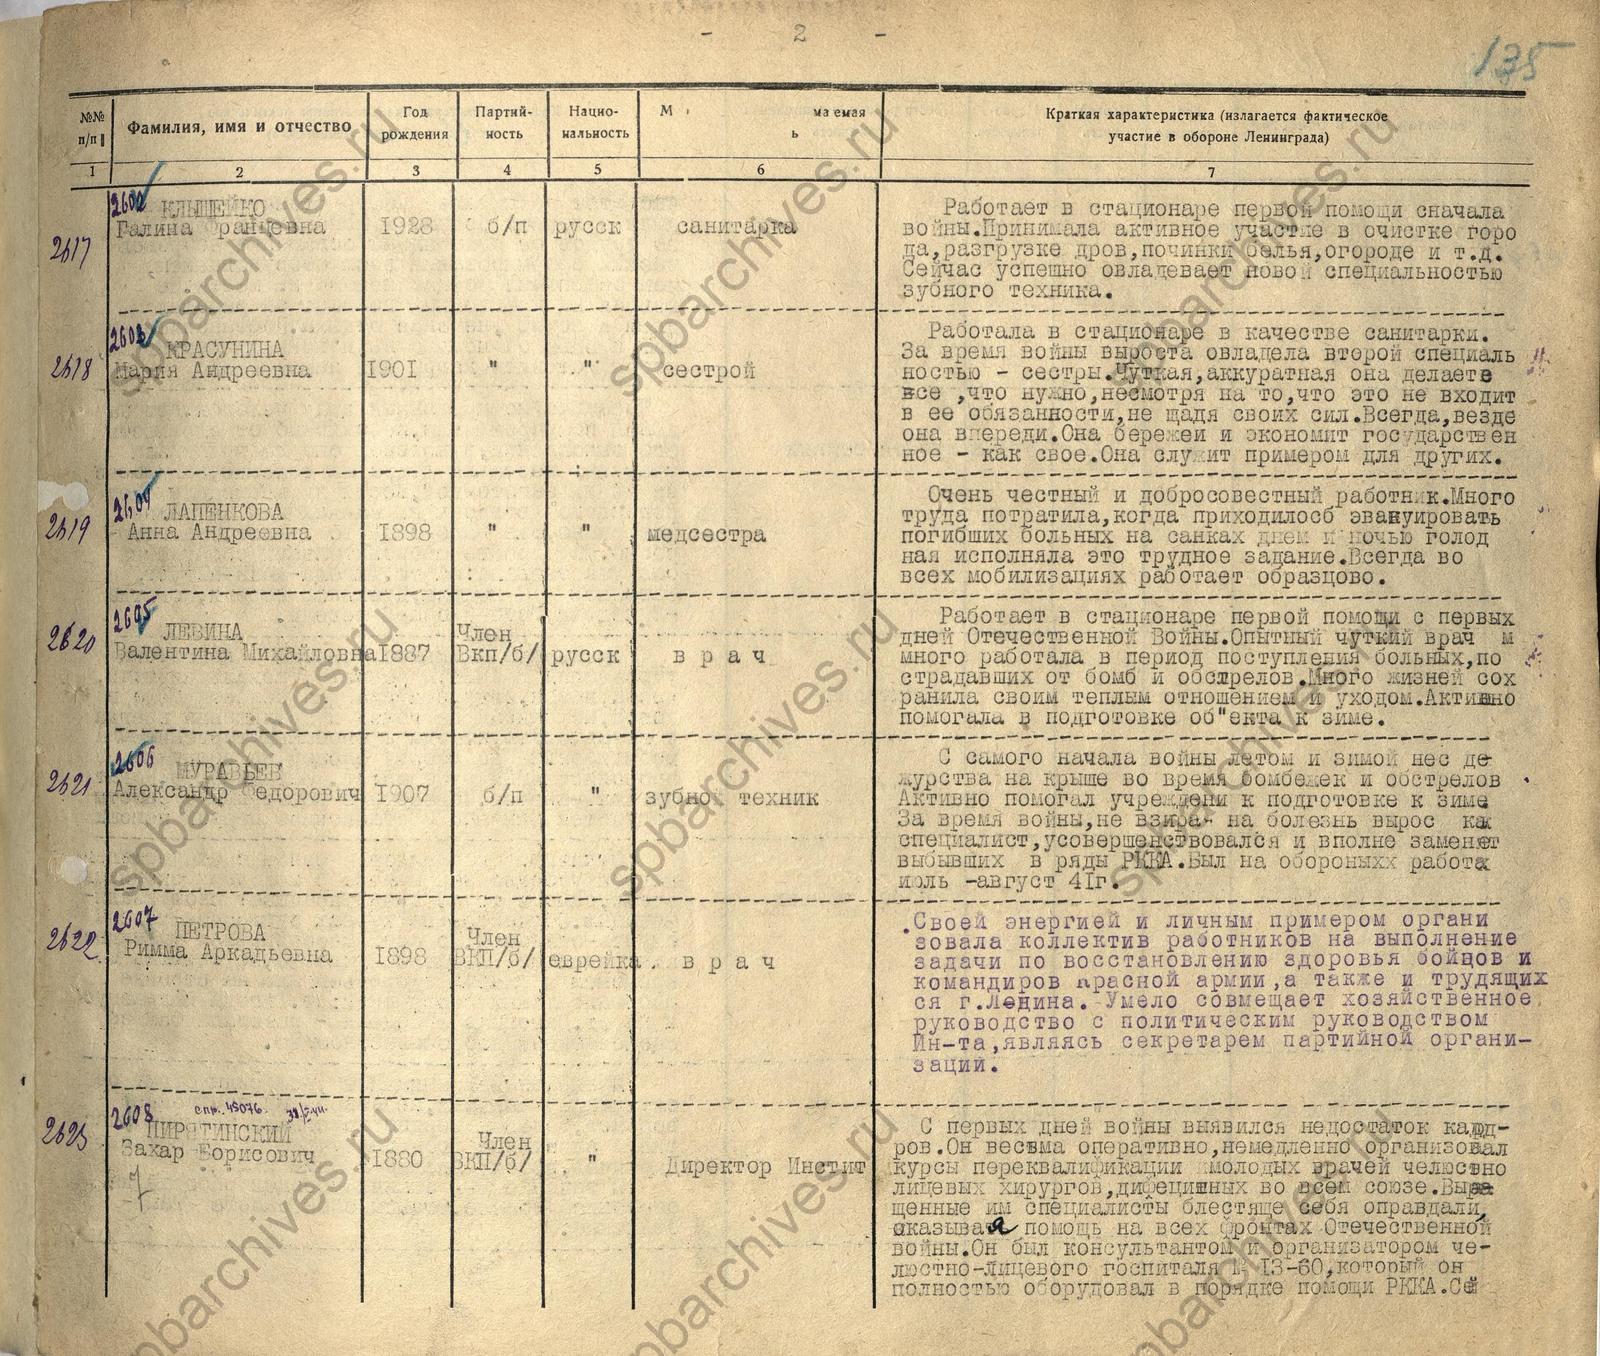 - 2 -
135
№№ п/п
Фамилия, имя и отчество
Год рождения
Партий-ность
Нацио-нальность
М маемая ь
Краткая характеристика (излагается фактическое участие в обороне Ленинграда)
1 2 3 4 5 6 7
2602
2617
КЛЫШЕЙКО
Галина Францевна
1928 б/п русск санитарка
Работает в стационаре первой помощи сначала
войны.Принимала активное участие в очистке горо
да,разгрузке дров,починки белья,огороде и т.д.
Сейчас успешно овладевает новой специальностью
зубного техника.
2603
2618
КРАСУНИНА
Мария Андреевна
1901 " " сестрой
Работала в стационаре в качестве санитарки.
За время войны выроста овладела второй специаль
ностью - сестры.Чуткая,аккуратная она делаете
все ,что нужно,несмотря на то,что это не входит
в ее обязанности,не щадя своих сил.Всегда,везде
она впереди.Она бережеи и экономит государствен
ное - как свое.Она служит примером для других.
2604
2619
ЛАПЕНКОВА
Анна Андреевна
1898 " " медсестра
Очень честный и добросовестный работник.Много
труда потратила,когда приходилосб эвакуировать
погибших больных на санках днем и ночью голод
ная исполняла это трудное задание.Всегда во
всех мобилизациях работает образцово.
2605
2620
ЛЕВИНА
Валентина Михайловна
1887 Член Вкп/б/ русск в р а ч
Работает в стационаре первой помощи с первых
дней Отечественной Войны.Опытный чуткий врач м
много работала в период поступления больных,по
страдавших от бомб и обстрелов.Много жизней сох
ранила своим теплым отношением и уходом.Активно
помогала в подготовке об"екта к зиме.
2606
2621
МУРАВЬЕВ
Александр Федорович
1907 б/п " зубной техник
С самого начала войны летом и зимой нес де-
журства на крыше во время бомбежек и обстрелов
Активно помогал учреждени к подготовке к зиме
За время войны,не взира- на болезнь вырос как
специалист,усовершенствовался и вполне заменят
выбывших в ряды РККА.Был на обороныхх работах
июль -август 41г.
2607
2622
ПЕТРОВА
Римма Аркадьевна
1898 Член ВКП/б/ еврейка. в р а ч
Своей энергией и личным примером органи
зовала коллектив работников на выполнение
задачи по восстановлению здоровья бойцов и
командиров Красной армии,а также и трудящих
ся г.Ленина. Умело совмещает хозяйственное
руководство с политическим руководством
Ин-та,являясь секретарем партийной органи-
зации.
2608
спр. 45076
2623
ПИРЯТИНСКИЙ
Захар Борисович
7
1880 Член ВКП/б/ " Директор Инстит
С первых дней войны выявился недостаток кад-
ров.Он весьма оперативно,немедленно организовал
курсы переквалификации молодых врачей челюстно
лицевых хирургов,дифецитных во всем союзе.Выра
щенные им специалисты блестяще себя оправдали,
оказывая помощь на всех фронтах Отечественной
войны.Он был консультантом и организатором че-
люстно-лицевого госпиталя № 13-60,который он
полностью оборудовал в порядке помощи РККА.Сей
spbarchives.ru
spbarchives.ru
spbarchives.ru
spbarchives.ru
spbarchives.ru
spbarchives.ru
spbarchives.ru
spbarchives.ru
spbarchives.ru